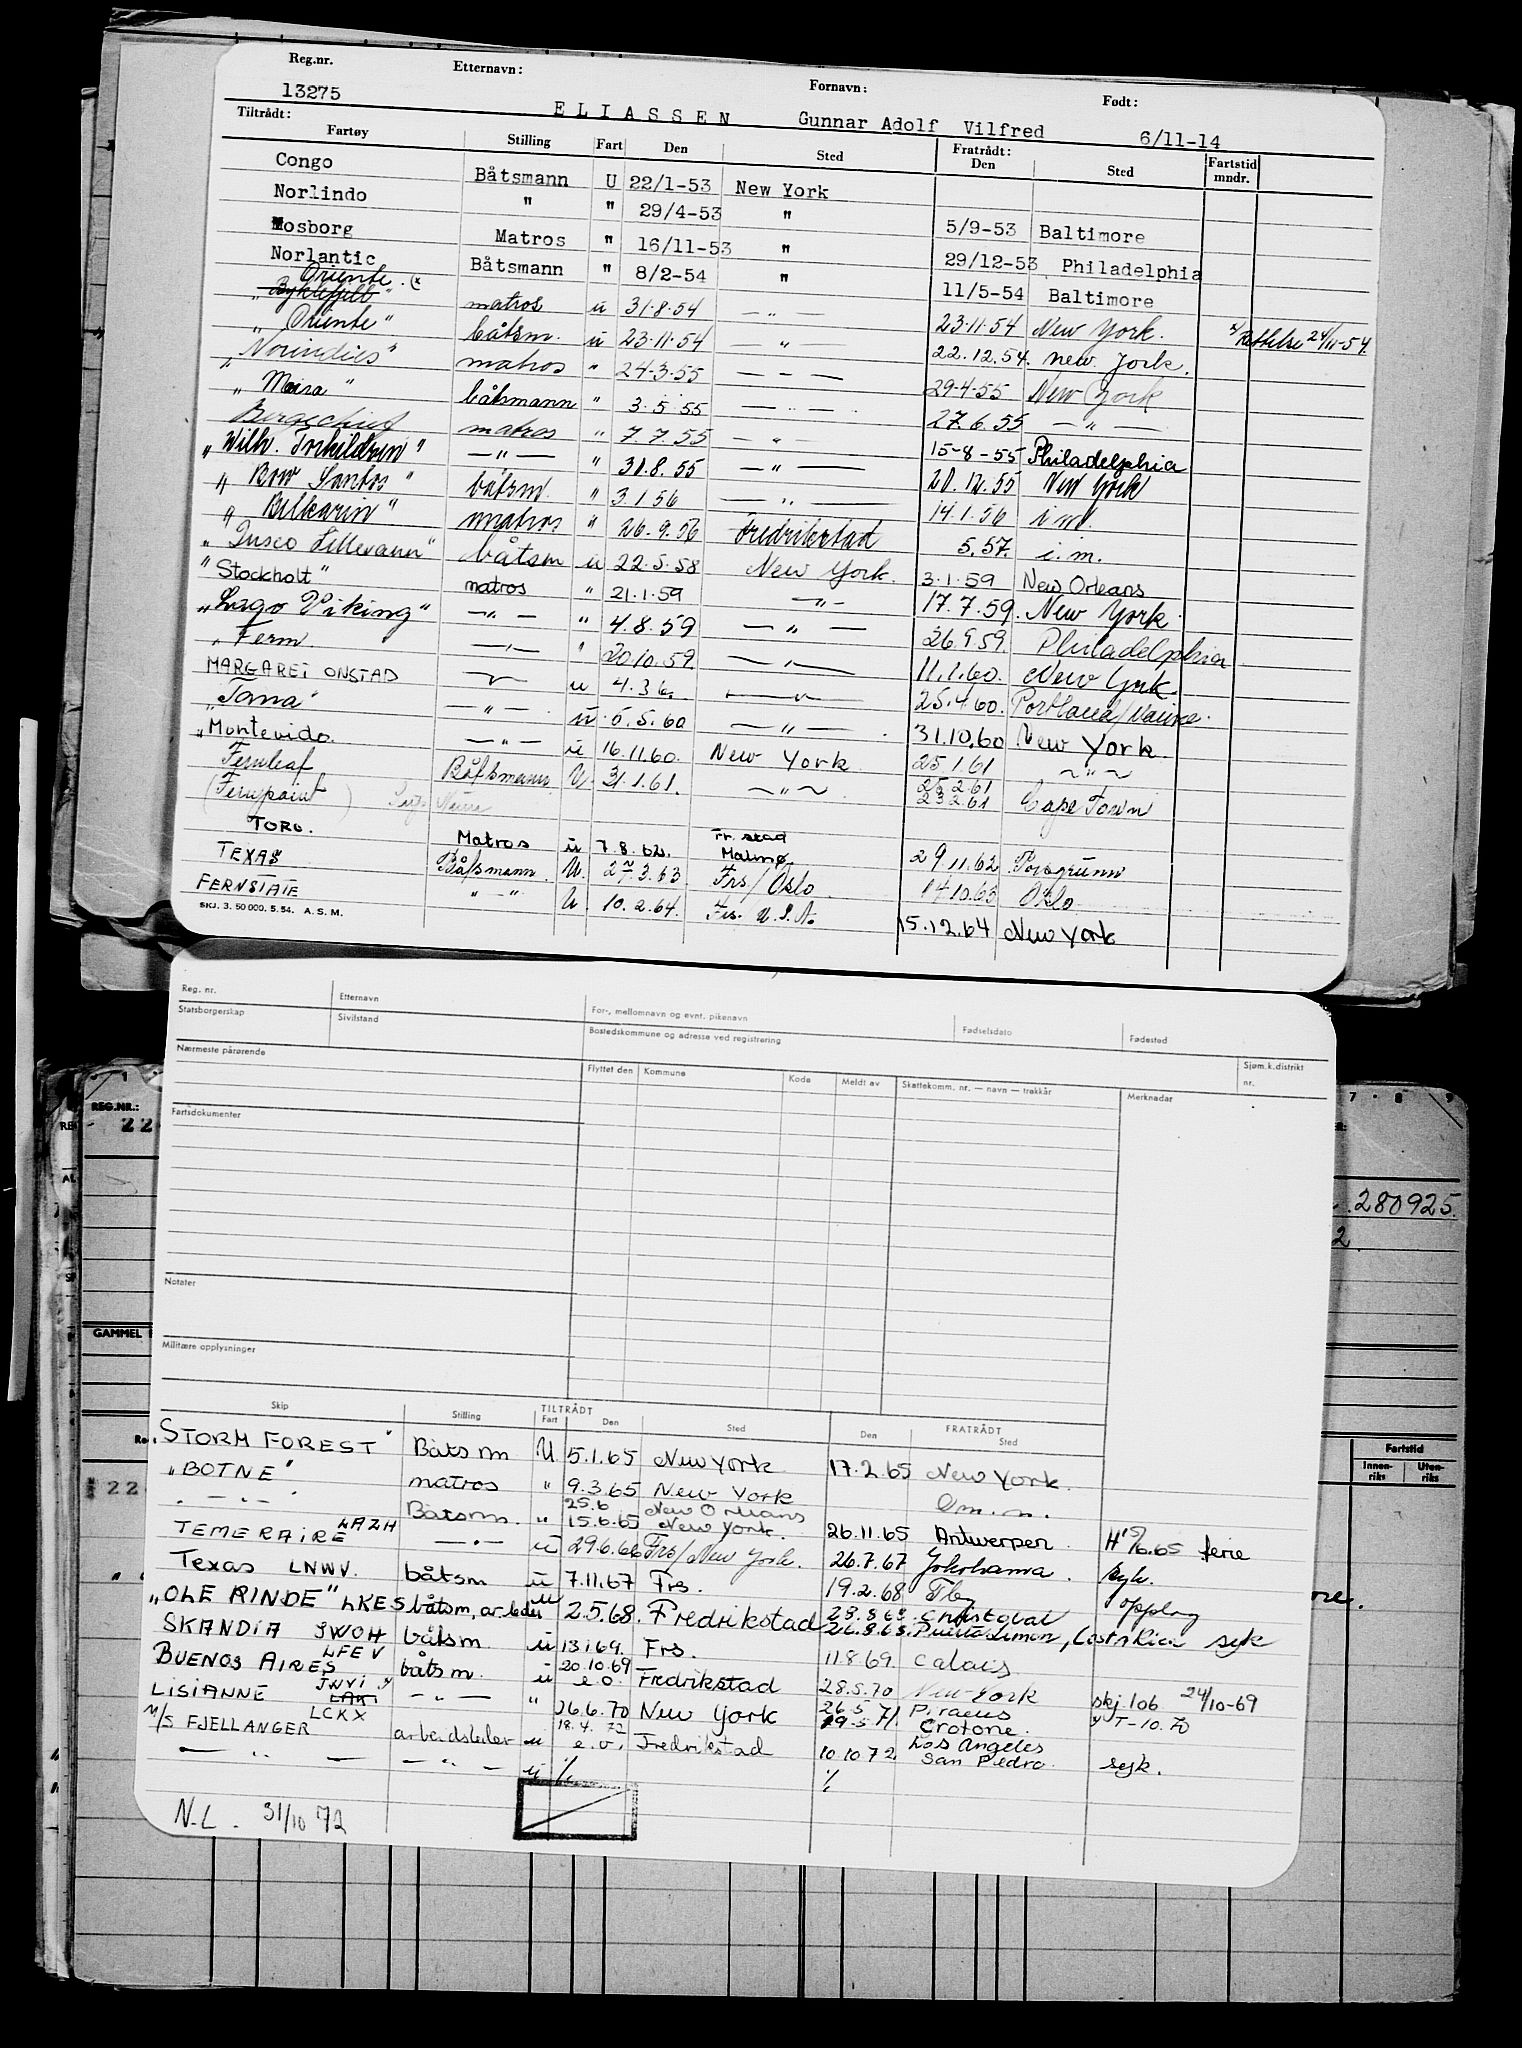 Reg.nr. Etternavn: Fornavn: Født:
13275 ELIASSEN Gunnar Adolf Vilfred 6/11-14
Tiltrådt: Fratrådt:
Fartøy Stilling Fart Den Sted Den Sted Fartstid mndr.
Congo Båtsmann U 22/1-53 New York
Norlindo " " 29/4-53 " 5/9-53 Baltimore
Mosborg Matros " 16/11-53 " 29/12-53 Philadelphia
Norlantic Båtsmann " 8/2-54 " 11/5-54 Baltimore
Oriente (x
"Byklefjell" matros u 31.8.54 — " — 23.11.54 New York. x/Rettelse 24/11-54.
"Oriente" båtsm. u 23.11.54 — " — 22.12.54. New York.
"Norindies" matros " 24.3.55 — " — 29.4.55 New York
"Mosra" båtsmann " 3.5.55 — " — 27.6.55 — " —
Bergechief matros " 7.7.55 — " 15-8-55 Philadelphia
"Wilh. Torkildsen" — " — " 31.8.55 — " — 20.12.55 New York
"Bow Santos" båtsm. " 3.1.56 — " — 14.1.56 i.m.
"Belkarin" matros " 26.9.56 Fredrikstad 5.57. i.m.
"Dusco Lillevann" båtsm u 22.5.58 New York. 3.1.59 New Orleans
"Stockholt" matros " 21.1.59 — " — 17.7.59. New York.
"Lago Viking" — " — " 4.8.59 — " — 26.9.59. Philadelphia
"Ferm. — " — " 20.10.59. — " — 11.1.60. New York.
MARGARET ONSTAD — " — u 4.3.6. — " — 25.4.60. Portland/Maine.
"Tana" — " — u 5.5.60 — " — 31.10.60 New York.
"Montevido. — " — u 16.11.60. New York 25.1.61 — " —
Fernleaf Båtsmann U. 31.1.61. — " — 25.2.61
(Fernpoint) 23.2.61 Cape Town
TORO. Matros u 7.8.62. Fr.stad Malmø 29.11.62 Porsgrunn
TEXAS Båtsmann. U. 27.3.63 Frs/Oslo. 14.10.63 Oslo
FERNSTATE " — " U. 10.2.64. Frs. U.S.A. 15.12.64 New York
SKJ. 3. 50 000. 5. 54. A. S. M.
Reg. nr. Etternavn For-, mellomnavn og evnt. pikenavn Fødselsdato Fødested
Statsborgerskap Sivilstand Bostedskommune og adresse ved registrering
Nærmeste pårørende Flyttet den Kommune Kode Meldt av Skattekomm. nr. — navn — trekkår Sjøm.k.distrikt nr.
Merknader
Fartsdokumenter
Notater
Militære opplysninger
TILTRÅDT FRATRÅDT
Skip Stilling Fart Den Sted Den Sted
"STORM FOREST" Båtsm U 5.1.65 New York 17.2.65 New York.
"BOTNE" matros " 9.3.65 New York Om.m.
" — " — " Båtsm. " 25.6 15.6.65 New Orleans New York. 26.11.65 Antwerpen H 15/6.65 ferie
TEMERAIRE LAZH — " — u 29.6.66 Frs/New York. 26.7.67 Yokohama. syk.
Texas LNWV. båtsm u 7.11.67 Frs. 19.2.68 Tbg opplag
"OLE RINDE" LKES båtsm, arbleder u 2.5.68. Fredrikstad 28.8.68. Cristobal
26.8.68. Puerto Limon, Costa Rica syk
SKANDIA JWOH båtsm u 13.1.69. Frs. 11.8.69. Calais
BUENOS AIRES LFEV båtsm. u 20.10.69 e.o. Fredrikstad 28.5.70 New York skj. 106 24/10-69
LISIANNE JWVI y LAKI — " — " 16.6.70 New York 26.5.71 19.5.71. Piraeus Crotone. y T-10.70
M/S FJELLANGER LCKX arbeidsleder u 18.4.72 e.o. Fredrikstad 10.10.72. Los Angeles San Pedro. syk.
— " — — " — u % %
N.L. 31/10 72
REG.NR.:
22
GAMMEL
280925.
2.
Fartstid
Innenriks Utenriks
22